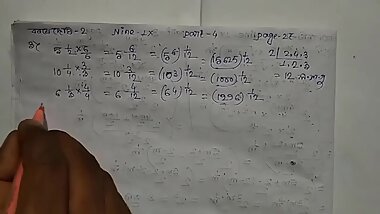 Nine-IX part-4 page-22
5 1/2 × 6/6 = 5 6/12 = (5^6) 1/12 = (15625) 1/12 2 | 2, 4, 3
10 1/4 × 3/3 = 10 3/12 = (10^3) 1/12 = (1000) 1/12 1, 2, 3
6 1/3 × 4/4 = 6 4/12 = (6^4) 1/12 = (1296) 1/12 = 12